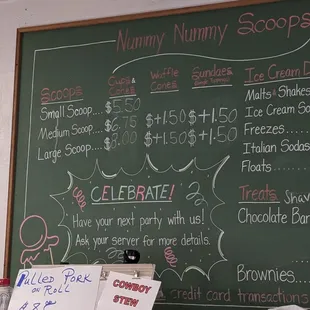 Nummy Nummy Scoops
Scoops
Cups &
Cones
Waffle
Cones
Sundaes
Small Scoop.... $5.50
Medium Scoop.... $6.75 $+1.50 $+1.50
Large Scoop.... $8.00
Ice Cream D
Malts & Shakes
Ice Cream So
Freezes......
Italian Sodas
Floats......
CELEBRATE!
Have your next party with us!
Ask your server for more details.
Treats
Shav
Chocolate Bar
Brownies.........
a credit card transactions
Pulled Pork
on Roll
COWBOY
STEW